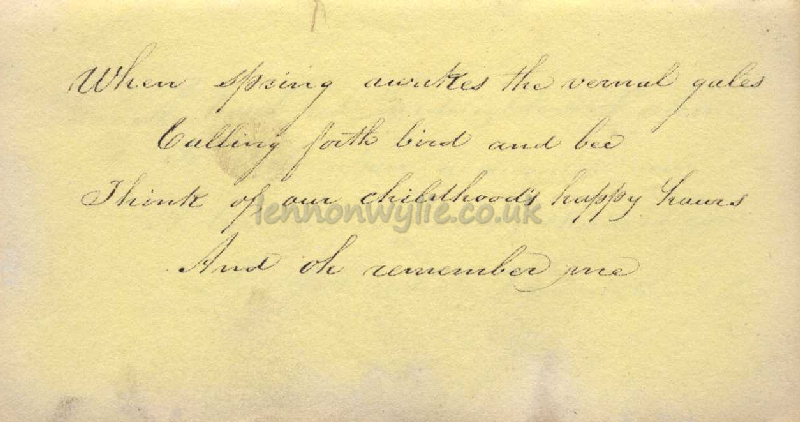 When spring awakes the vernal gales
Calling forth bird and bee
Think of our childhood's happy hours
lennonwylie.co.uk
And oh remember me